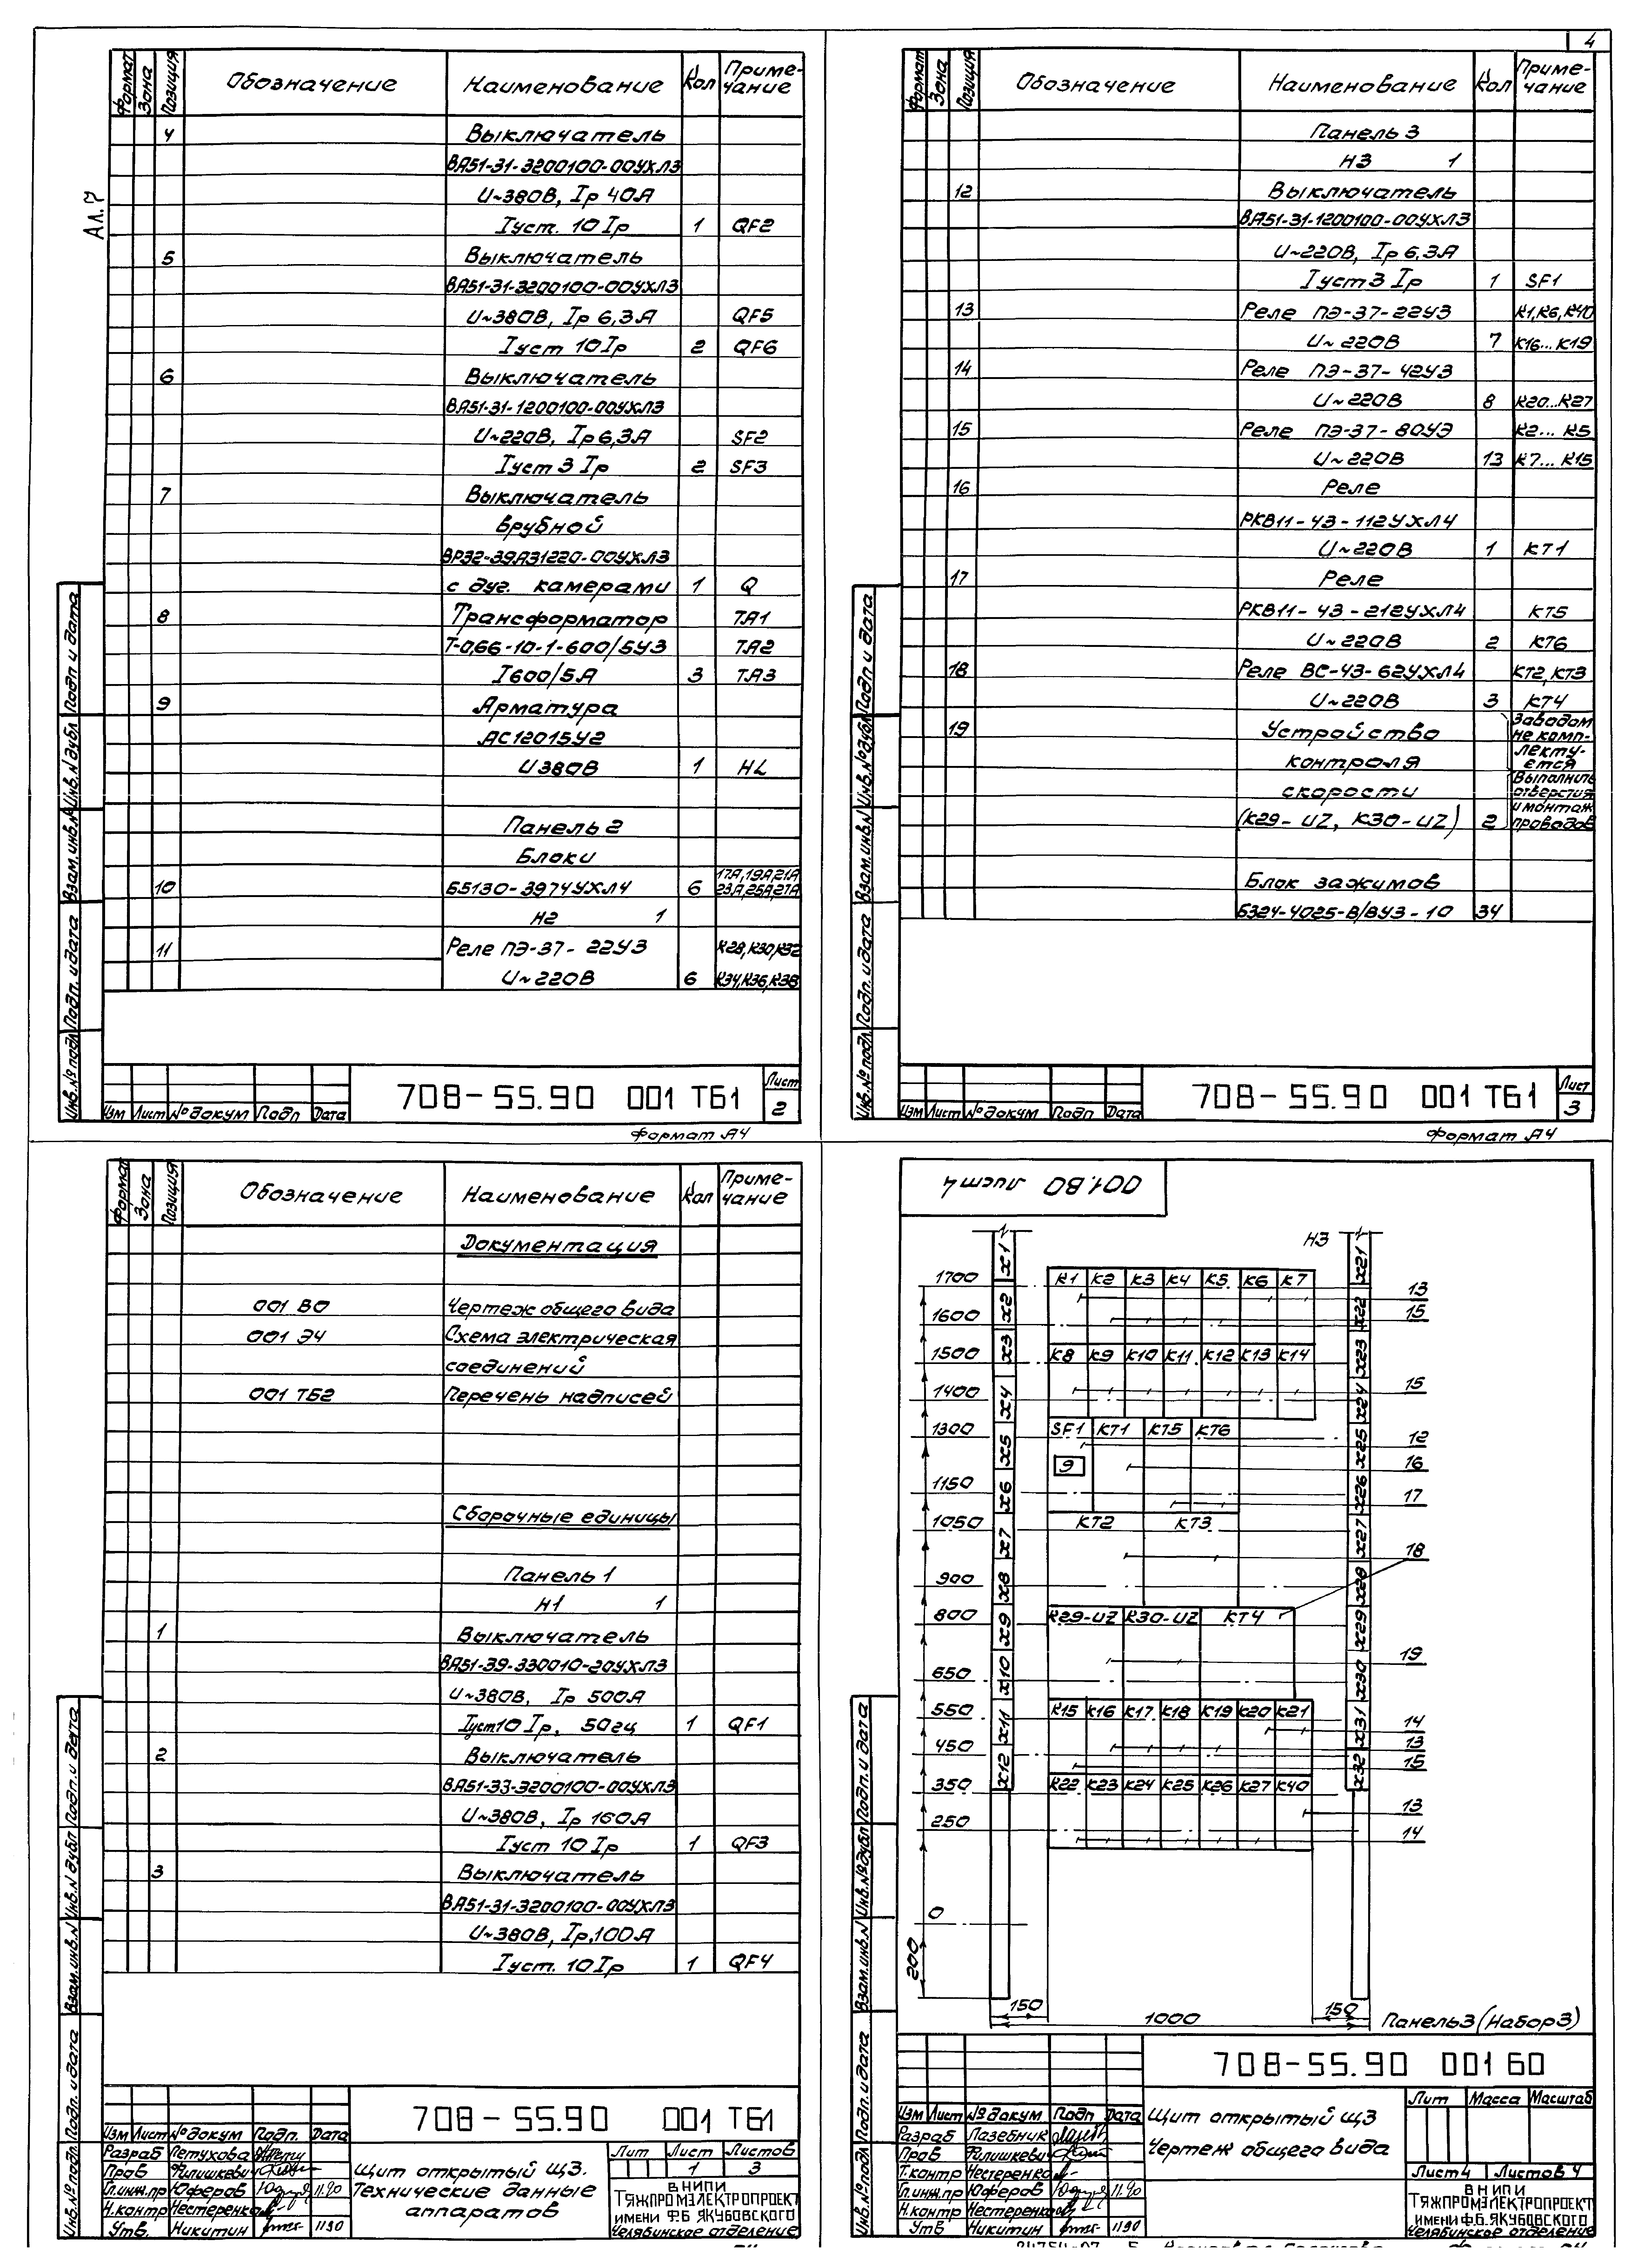 4
Ал.7
Формат Зона Позиция Обозначение Наименование Кол Приме-чание
4 Выключатель
ВА51-31-3200100-00УХЛ3
U~380В, Iр 40А
Iуст. 10 Iр 1 QF2
5 Выключатель
ВА51-31-3200100-00УХЛ3
U~380В, Iр 6,3А QF5
Iуст 10Iр 2 QF6
6 Выключатель
ВА51-31-1200100-00УХЛ3
U~220В, Iр 6,3А SF2
Iуст 3 Iр 2 SF3
7 Выключатель
врубной
ВР32-39А31220-00УХЛ3
с дуг. камерами 1 Q
8 Трансформатор ТА1
Т-0,66-10-1-600/5У3 ТА2
I600/5А 3 ТА3
9 Арматура
АС12015У2
U380В 1 HL
Панель 2
Блоки
17А,19А,21А
10 Б5130-3974УХЛ4 6 23А,25А,27А
Н2 1
11 Реле ПЭ-37-22У3 К28,К30,К32
U~220В 6 К34,К36,К38
Инв.№ подл. Подп. и дата Взам.инв.№ Инв.№ дубл Подп и дата
708-55.90 001 ТБ1
Лист
2
Изм Лист № докум Подп Дата
Формат А4
Формат Зона Позиция Обозначение Наименование Кол Приме-чание
Панель 3
Н3 1
12 Выключатель
ВА51-31-1200100-00УХЛ3
U~220В, Iр 6,3А
Iуст 3 Iр 1 SF1
13 Реле ПЭ-37-22У3 К1,К6,К40
U~220В 7 К16...К19
14 Реле ПЭ-37-42У3
U~220В 8 К20...К27
15 Реле ПЭ-37-80УЭ К2...К5
U~220В 13 К7...К15
16 Реле
РКВ11-43-112УХЛ4
U~220В 1 КТ1
17 Реле
РКВ11-43-212УХЛ4 КТ5
U~220В 2 КТ6
18 Реле ВС-43-62УХЛ4 КТ2,КТ3
U~220В 3 КТ4
19 Устройство
контроля
скорости
(К29-UZ, К30-UZ) 2
Заводом
не комп-
лекту-
ется
Выполнить
отверстия
и монтаж
проводов
Блок зажимов
Б324-4025-В/ВУ3-10 34
Инв.№ подл. Подп. и дата Взам.инв.№ Инв.№ дубл Подп и дата
708-55.90 001 ТБ1
Лист
3
Изм Лист № докум Подп Дата
Формат А4
Формат Зона Позиция Обозначение Наименование Кол Приме-чание
Документация
001 ВО Чертеж общего вида
001 Э4 Схема электрическая
соединений
001 ТБ2 Перечень надписей
Сборочные единицы
Панель 1
Н1 1
1 Выключатель
ВА51-39-330010-20УХЛ3
U~380В, Iр 500А
Iуст10 Iр, 50гц 1 QF1
2 Выключатель
ВА51-33-3200100-00УХЛ3
U~380В, Iр 160А
Iуст 10 Iр 1 QF3
3 Выключатель
ВА51-31-3200100-00УХЛ3
U~380В, Iр,100А
Iуст. 10Iр 1 QF4
Инв.№ подл. Подп. и дата Взам.инв.№ Инв.№ дубл Подп. и дата
708-55.90 001 ТБ1
Изм Лист № докум Подп. Дата
Разраб Петухова
Пров Филишкевич
Гл.инж.пр Юферов 11.90
Н.контр Нестеренко
Утв. Никитин 11 90
Щит открытый Щ3.
Технические данные
аппаратов
Лит Лист Листов
1 3
ВНИПИ
ТЯЖПРОМЭЛЕКТРОПРОЕКТ
ИМЕНИ Ф.Б. ЯКУБОВСКОГО
Челябинское отделение
001 ВО Лист 4
Н3
Х1 Х2 Х3 Х4 Х5 Х6 Х7 Х8 Х9 Х10 Х11 Х12
Х21 Х22 Х23 Х24 Х25 Х26 Х27 Х28 Х29 Х30 Х31 Х32
1700 К1 К2 К3 К4 К5 К6 К7 13
1600 15
1500 К8 К9 К10 К11 К12 К13 К14
1400 15
1300 SF1 КТ1 КТ5 КТ6 12
9 16
1150 17
1050 КТ2 КТ3
18
900
800 К29-UZ К30-UZ КТ4
19
650
550 К15 К16 К17 К18 К19 К20 К21 14
450 13
15
350 К22 К23 К24 К25 К26 К27 К40
13
250 14
0
200
150 1000 150
Панель3 (Набор3)
Инв.№ подл. Подп. и дата Взам.инв.№ Инв.№ дубл Подп. и дата
708-55.90 001 60
Изм Лист № докум Подп Дата
Разраб Лазебник
Пров Филишкевич
Т.контр Нестеренко
Гл.инж.пр Юферов 11.90
Н.контр Нестеренко
Утв Никитин 11 90
Щит открытый Щ3
Чертеж общего вида
Лит Масса Масштаб
Лист 4 Листов 4
ВНИПИ
ТЯЖПРОМЭЛЕКТРОПРОЕКТ
ИМЕНИ Ф.Б. ЯКУБОВСКОГО
Челябинское отделение